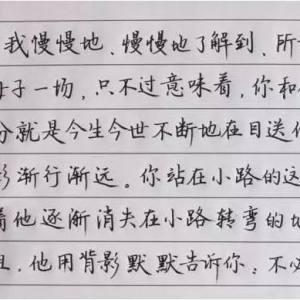 我慢慢地、慢慢地了解到，所
母子一场，只不过意味着，你和
分就是今生今世不断地在目送他
影渐行渐远。你站在小路的这
着他逐渐消失在小路转弯的地
且，他用背影默默告诉你：不必